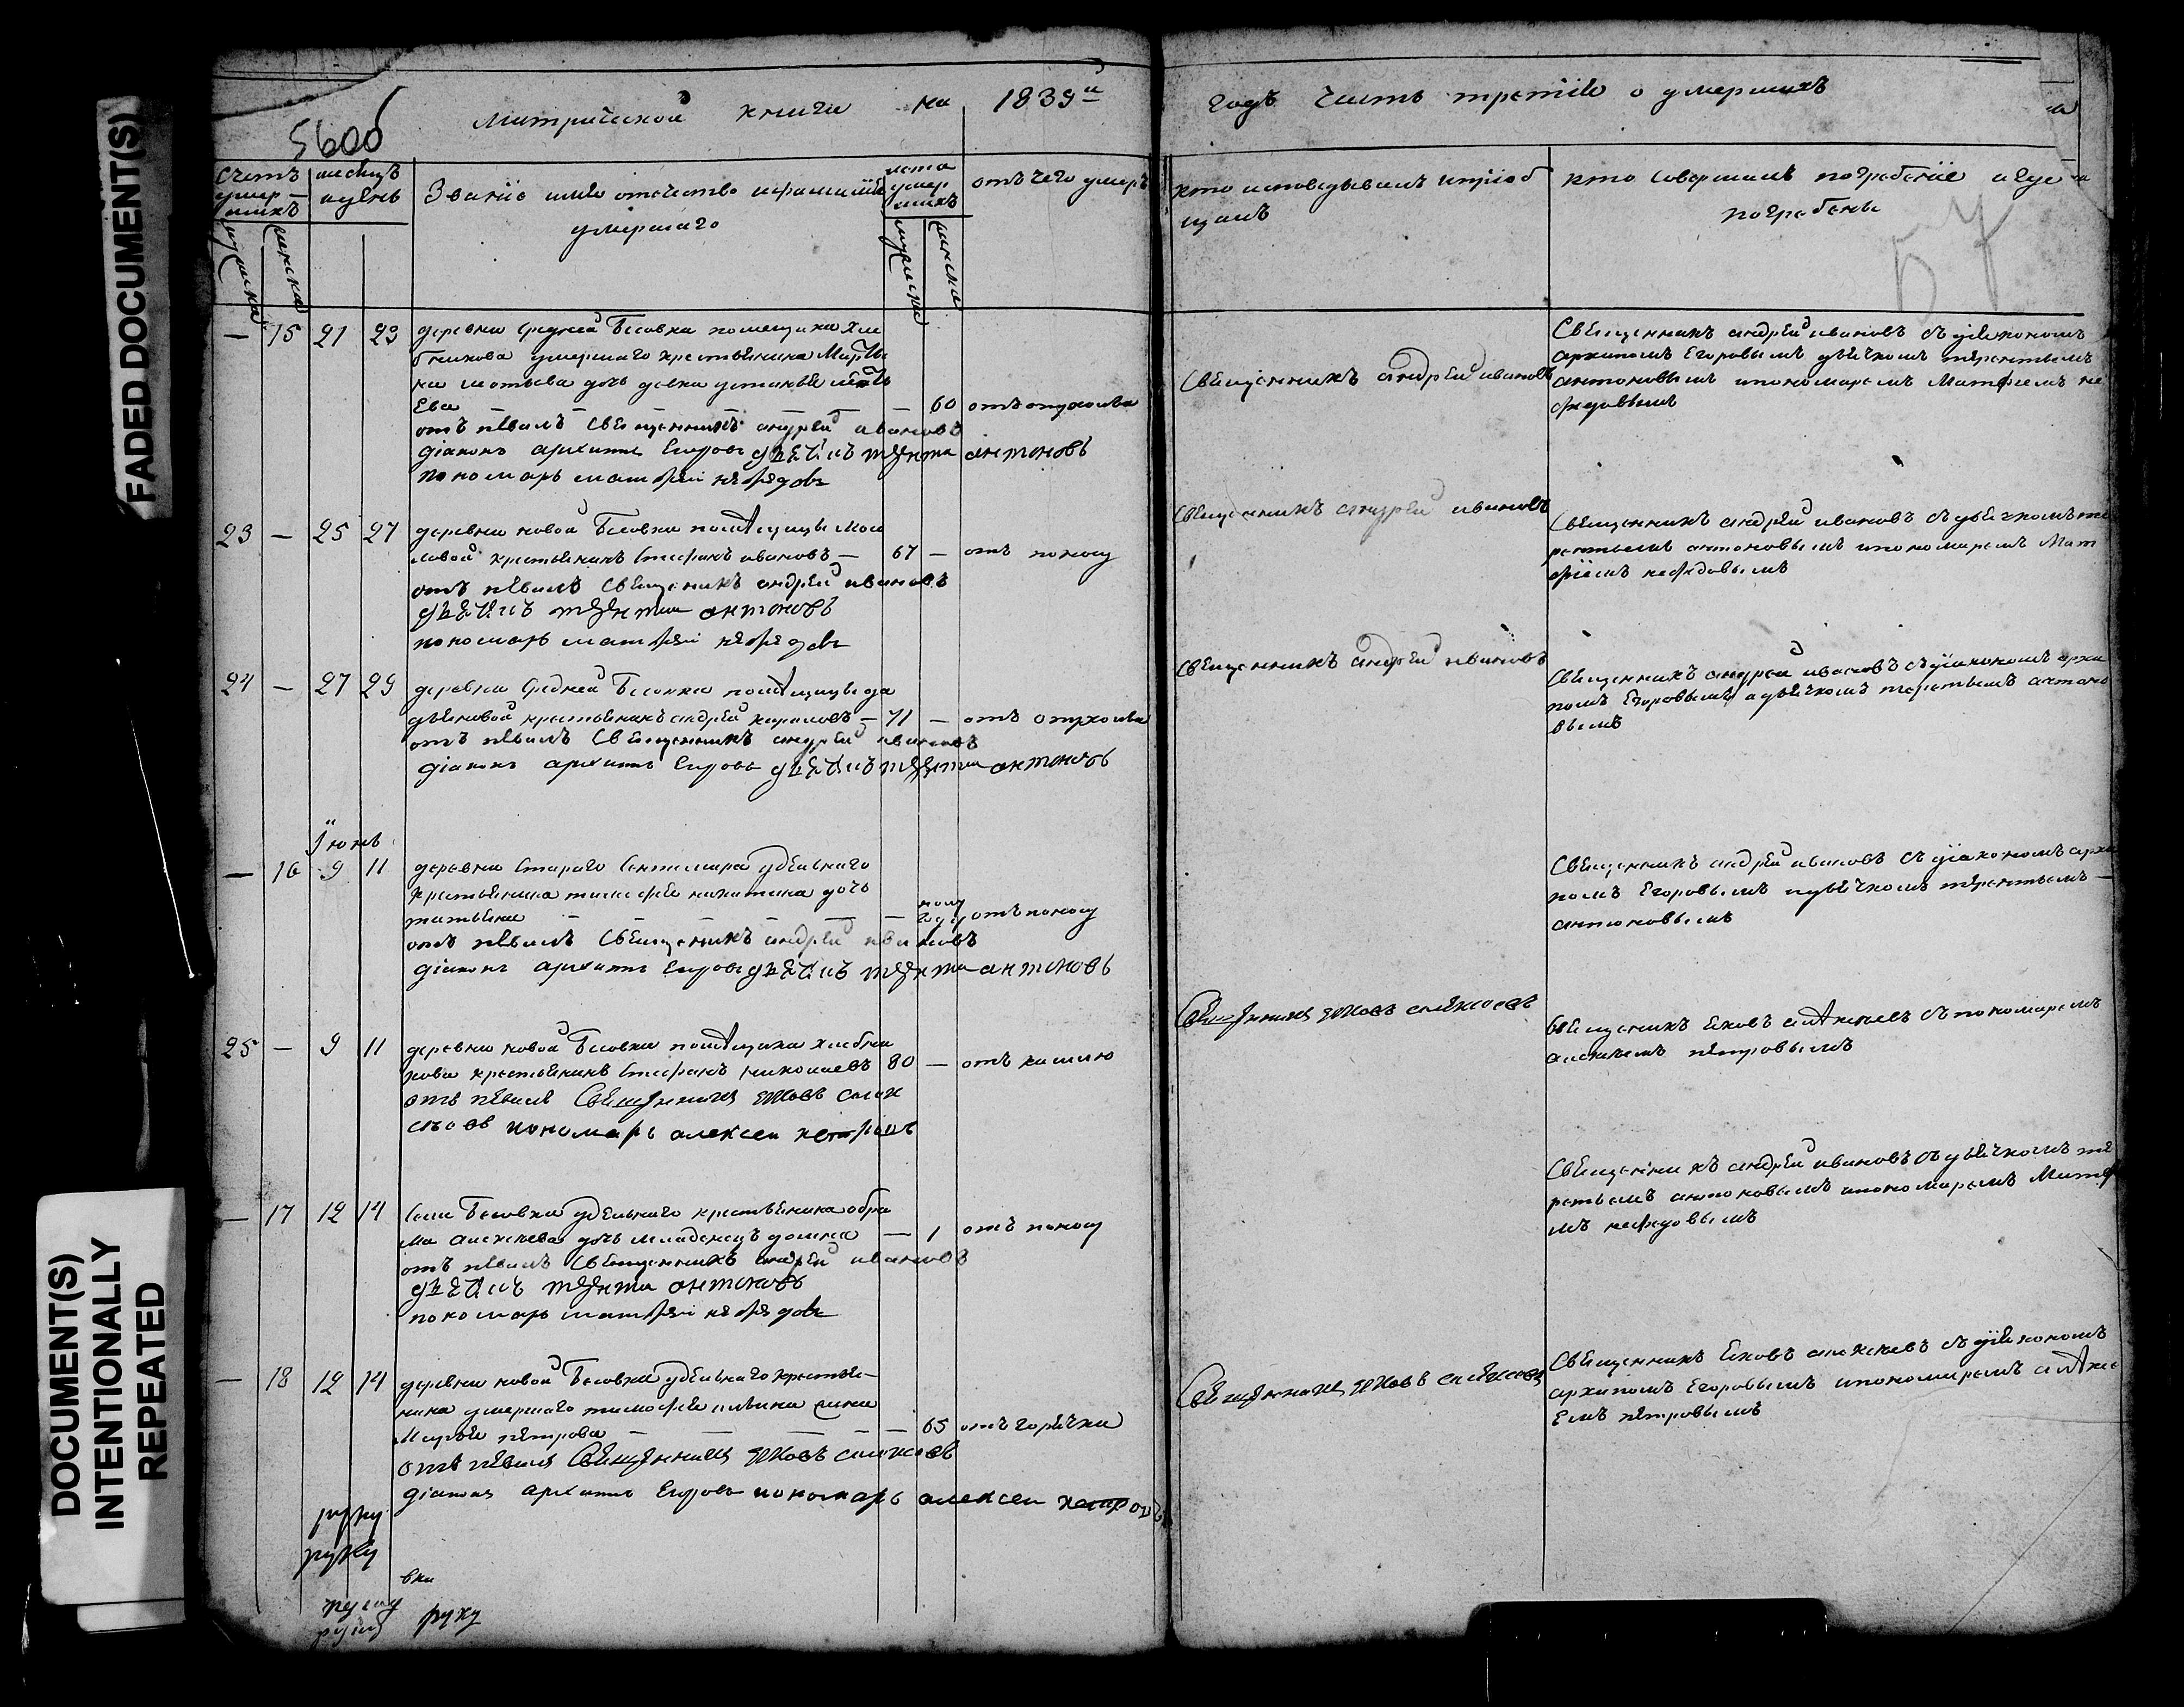 FADED DOCUMENT(S)
DOCUMENT(S)
INTENTIONALLY
REPEATED
560об
Митрической книги на 1839й
годъ Часть третіѧ о умершихъ
Счетъ умершихъ
месяцъ и день
Званіе имѧ отечество ифамилїѧ
умершаго
лета умершихъ
отъ чего умеръ
кто исповедывалъ ипріоб
щалъ
кто Совершалъ погребеніе игде
погребены
мужска
женска
мужска
женска
— 15 21 23
деревни Средней Бесовки помещика Хле
бникова умершаго крестьянина
дочь девка
Ева — — — — — 60 отъ опухолы
отъпѣвалъ Священникъ андрей ивановъ
діаконъ архипъ Егоровъ дьячекъ терентий антоновъ
пономарь матфей нефедовъ
Священникъ андрей ивановъ
Священникъ андрей ивановъ съ діякономъ
архипомъ Егоровымъ дьячкомъ терентьемъ
антоновымъ ипономаремъ Матфеемъ не
федовымъ
23 — 25 27
деревни новой Бесовки помѣщицы
крестьянинъ Стефанъ ивановъ — 67 — отъ поносу
отъпѣвалъ Священикъ андрей ивановъ
дьячекъ терентий антоновъ
пономарь матфей нефедовъ
Священникъ андрей ивановъ
Священникъ андрей ивановъ съ дьячкомъ те
рентьемъ антоновымъ ипономаремъ Мат
фіемъ нефедовымъ
24 — 27 29
деревни Средней Бесовки помѣщицы
крестьянинъ андрей — 71 — отъ опухолы
отъпѣвалъ Священникъ андрей ивановъ
діаконъ архипъ Егоровъ дьячекъ терентий антоновъ
Священникъ андрей ивановъ
Священникъ андрей ивановъ съ діякономъ архи
помъ Егоровымъ идьячкомъ терентьемъ антоно
вымъ
Iюнь
— 16 9 11
деревни Стараго удельнаго
крестьянина тимофея никитина дочь
татьяна — — — — — полу году отъ поносу
отъпѣвалъ Священикъ андрей ивановъ
діаконъ архипъ Егоровъ дьячекъ терентий антоновъ
Священникъ андрей ивановъ съ діякономъ архи
помъ Егоровымъ идьячкомъ терентьемъ —
антоновымъ
25 — 9 11
деревни новой Бесовки помѣщика хлебни
кова крестьянинъ Стефанъ николаевъ 80 — отъ кашлю
отъпѣвалъ Священникъ Яковъ алек
сѣевъ пономарь алексеи петровъ
Священникъ Яковъ алексеевъ
Священикъ Еяковъ алѣксеевъ съ пономаремъ
алексеемъ пѣтровымъ
— 17 12 14
Села Бесовки удельнаго крестьянина абра
ма алексеева дочь младенецъ домна — 1 отъ поносу
отъпѣвалъ Священникъ андрей ивановъ
дьячекъ терентий антоновъ
пономарь матфей нефедовъ
Священникъ андрей ивановъ съ дьячкомъ те
рентьемъ антоновымъ ипономаремъ Матфе
мъ нефедовымъ
— 18 12 14
деревни новой Бесовки удельнаго крестья-
нина умершаго тимофея ильина жена
Марфа пѣтрова — — — — — 65 отъ горячки
отъпѣвалъ Священникъ Яковъ алексеевъ
діаконъ архипъ Егоровъ пономарь алексеи петровъ
Священникъ Яковъ алексеевъ
Священникъ Еяковъ алексеевъ съ діякономъ
архипомъ Егоровымъ ипономаремъ алѣксе
Емъ пѣтровымъ
руку
руку
руку